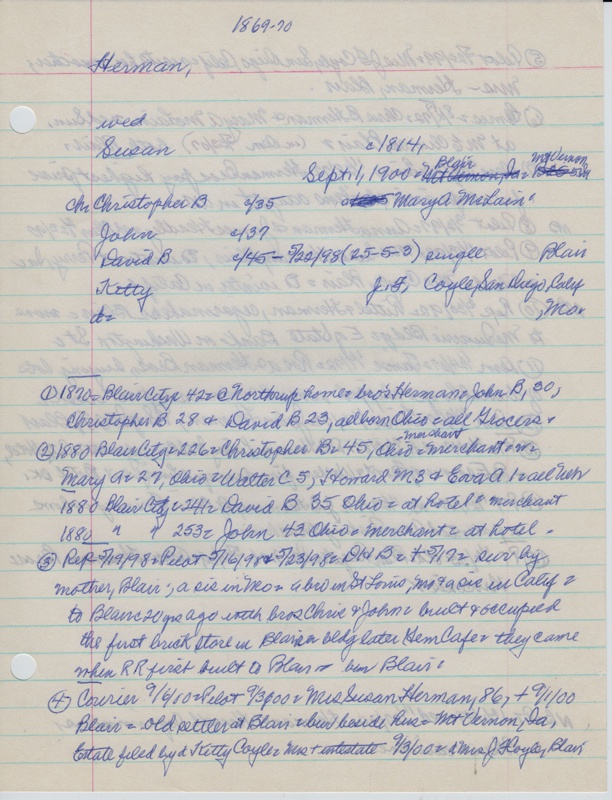 1869-70
Herman,
wed
Susan c1814,
Sept. 1, 1900 = Blair Mt Vernon, Ia = Mt Vernon,
ch: Christopher B c/35 Mary A. McLain
John c/37
David B c/45 - 5/22/98 (25-5-3) single Blair
Kitty J. F. Coyle, San Diego, Calif
d= , Mo.
① 1870 = Blair City = 42 = @ Northrup home = bros Herman = John B, 30,
Christopher B 28 & David B 23, all born Ohio = all Grocers.
② 1880 Blair City = 226 = Christopher B = 45, Ohio = merchant = m =
Mary A = 27, Ohio = Walter C 5, Howard M 3 & Ezra A 1 = all Neb
1880 Blair City = 241 = David B 35 Ohio = at hotel = merchant
1880 " " 253 = John 43 Ohio = merchant = at hotel.
③ Rep 5/19/98 = Pilot 5/16/98 & 5/23/98 = D H B = + 5/17 = surv by
mother, Blair; a sis in Mo = a bro in St Louis, Mo & a sis in Calif =
to Blair 20 yrs ago with bros Chris & John = built & occupied
the first brick store in Blair = bldg later Hem Cafe = they came
when RR first built to Blair = bur Blair.
④ Courier 9/6/00 = Pilot 9/3/00 = Mrs Susan Herman, 86, + 9/1/00
Blair = old settler at Blair = bur beside hus = Mt Vernon, Ia,
Estate filed by d Kitty Coyle = intestate 9/3/00 = d Mrs J F Coyle, Blair